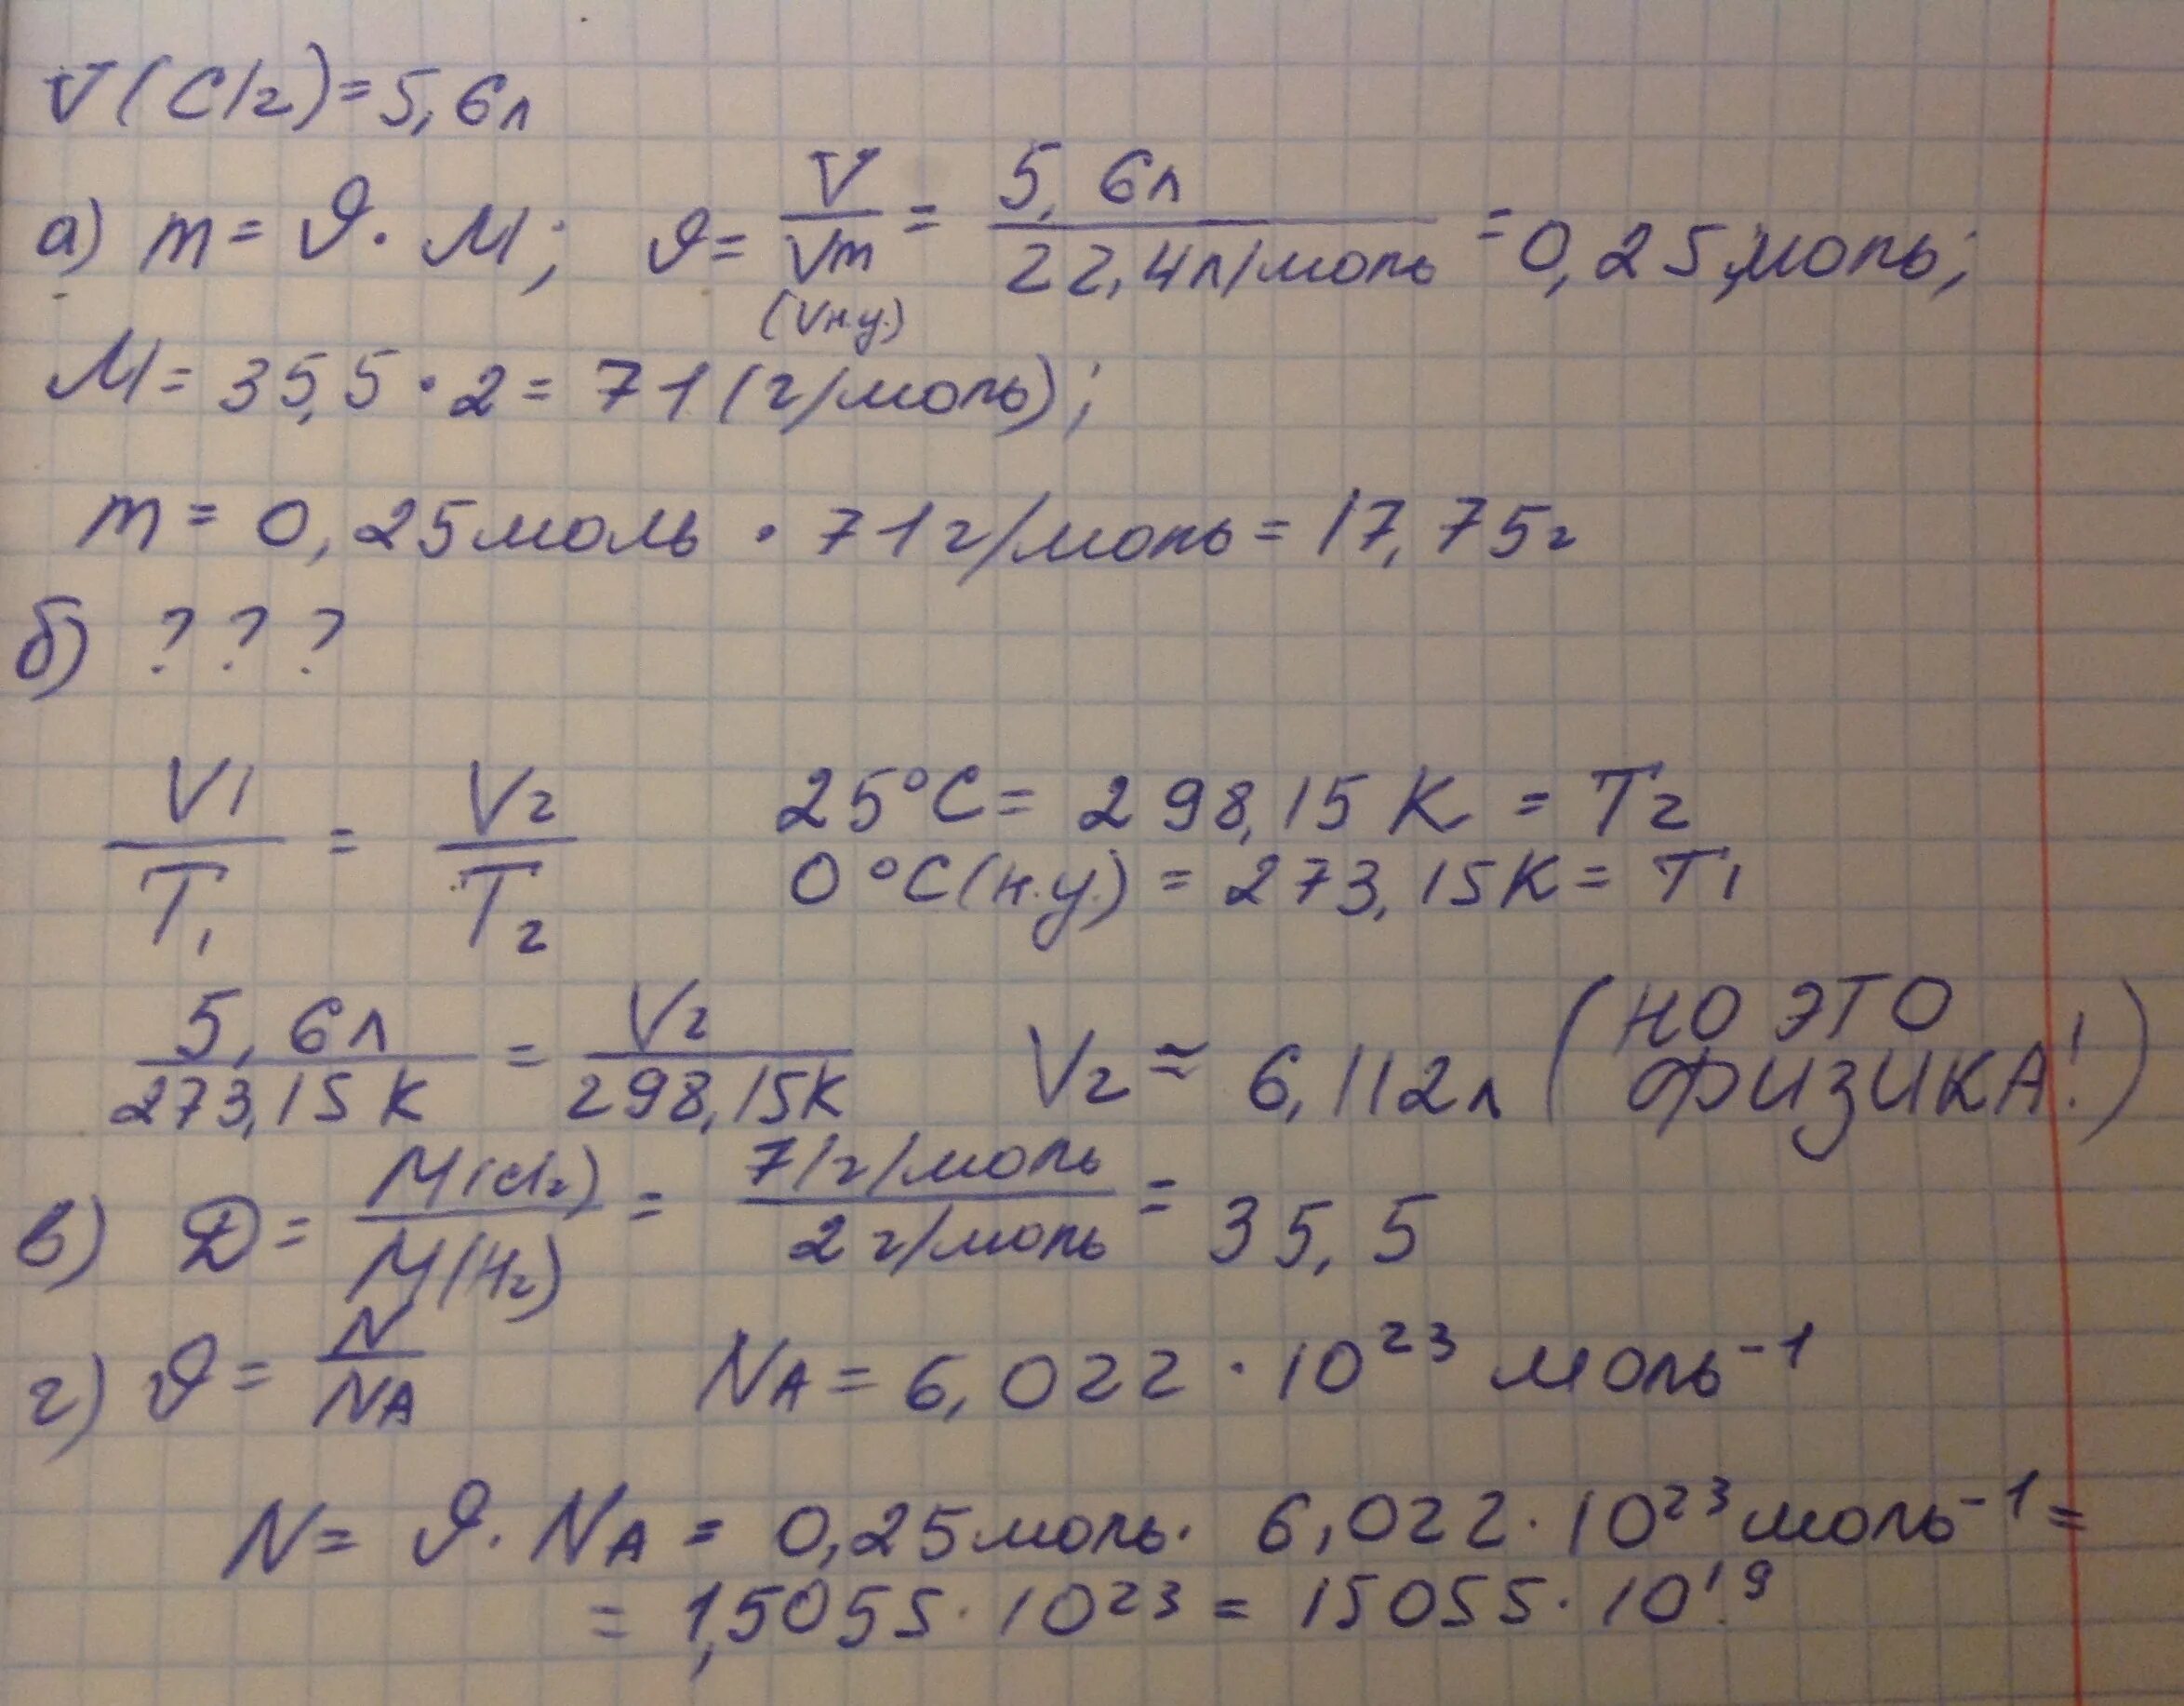 V(Cl2)=5,6л
а) m=ϑ·M; ϑ=V/Vm=5,6л/22,4л/моль=0,25моль;
(Vн.у.)
M=35,5·2=71(г/моль);
m=0,25моль·71г/моль=17,75г
б) ???
V1/T1=V2/T2 25°C=298,15K=T2
0°C(н.у.)=273,15K=T1
5,6л/273,15K=V2/298,15K V2≈6,112л (НО ЭТО ФИЗИКА!)
в) D=M(Cl2)/M(H2)=71г/моль/2г/моль=35,5
г) ϑ=N/NA NA=6,022·10²³ моль⁻¹
N=ϑ·NA=0,25моль·6,022·10²³моль⁻¹=
=1,5055·10²³=15055·10¹⁹